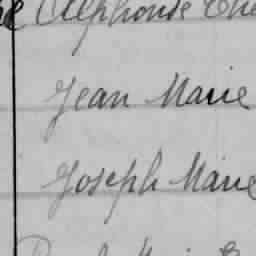 Alphonse
Jean Marie
Joseph Marie